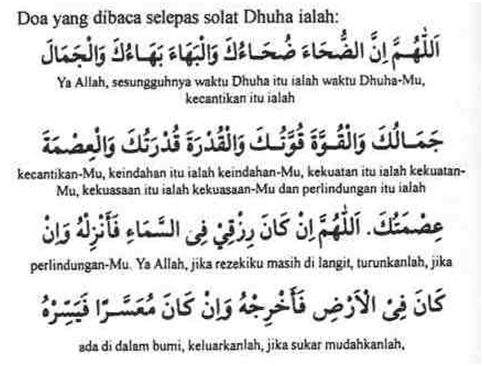 Doa yang dibaca selepas solat Dhuha ialah:
اَللّٰهُمَّ اِنَّ الضُّحَاءَ ضُحَاءُكَ وَالْبَهَاءَ بَهَاءُكَ وَالْجَمَالَ
Ya Allah, sesungguhnya waktu Dhuha itu ialah waktu Dhuha-Mu,
kecantikan itu ialah
جَمَالُكَ وَالْقُوَّةَ قُوَّتُكَ وَالْقُدْرَةَ قُدْرَتُكَ وَالْعِصْمَةَ
kecantikan-Mu, keindahan itu ialah keindahan-Mu, kekuatan itu ialah kekuatan-
Mu, kekuasaan itu ialah kekuasaan-Mu dan perlindungan itu ialah
عِصْمَتُكَ. اَللّٰهُمَّ اِنْ كَانَ رِزْقِيْ فِي السَّمَاءِ فَأَنْزِلْهُ وَاِنْ
perlindungan-Mu. Ya Allah, jika rezekiku masih di langit, turunkanlah, jika
كَانَ فِيْ الْاَرْضِ فَأَخْرِجْهُ وَاِنْ كَانَ مُعَسَّرًا فَيَسِّرْهُ
ada di dalam bumi, keluarkanlah, jika sukar mudahkanlah,